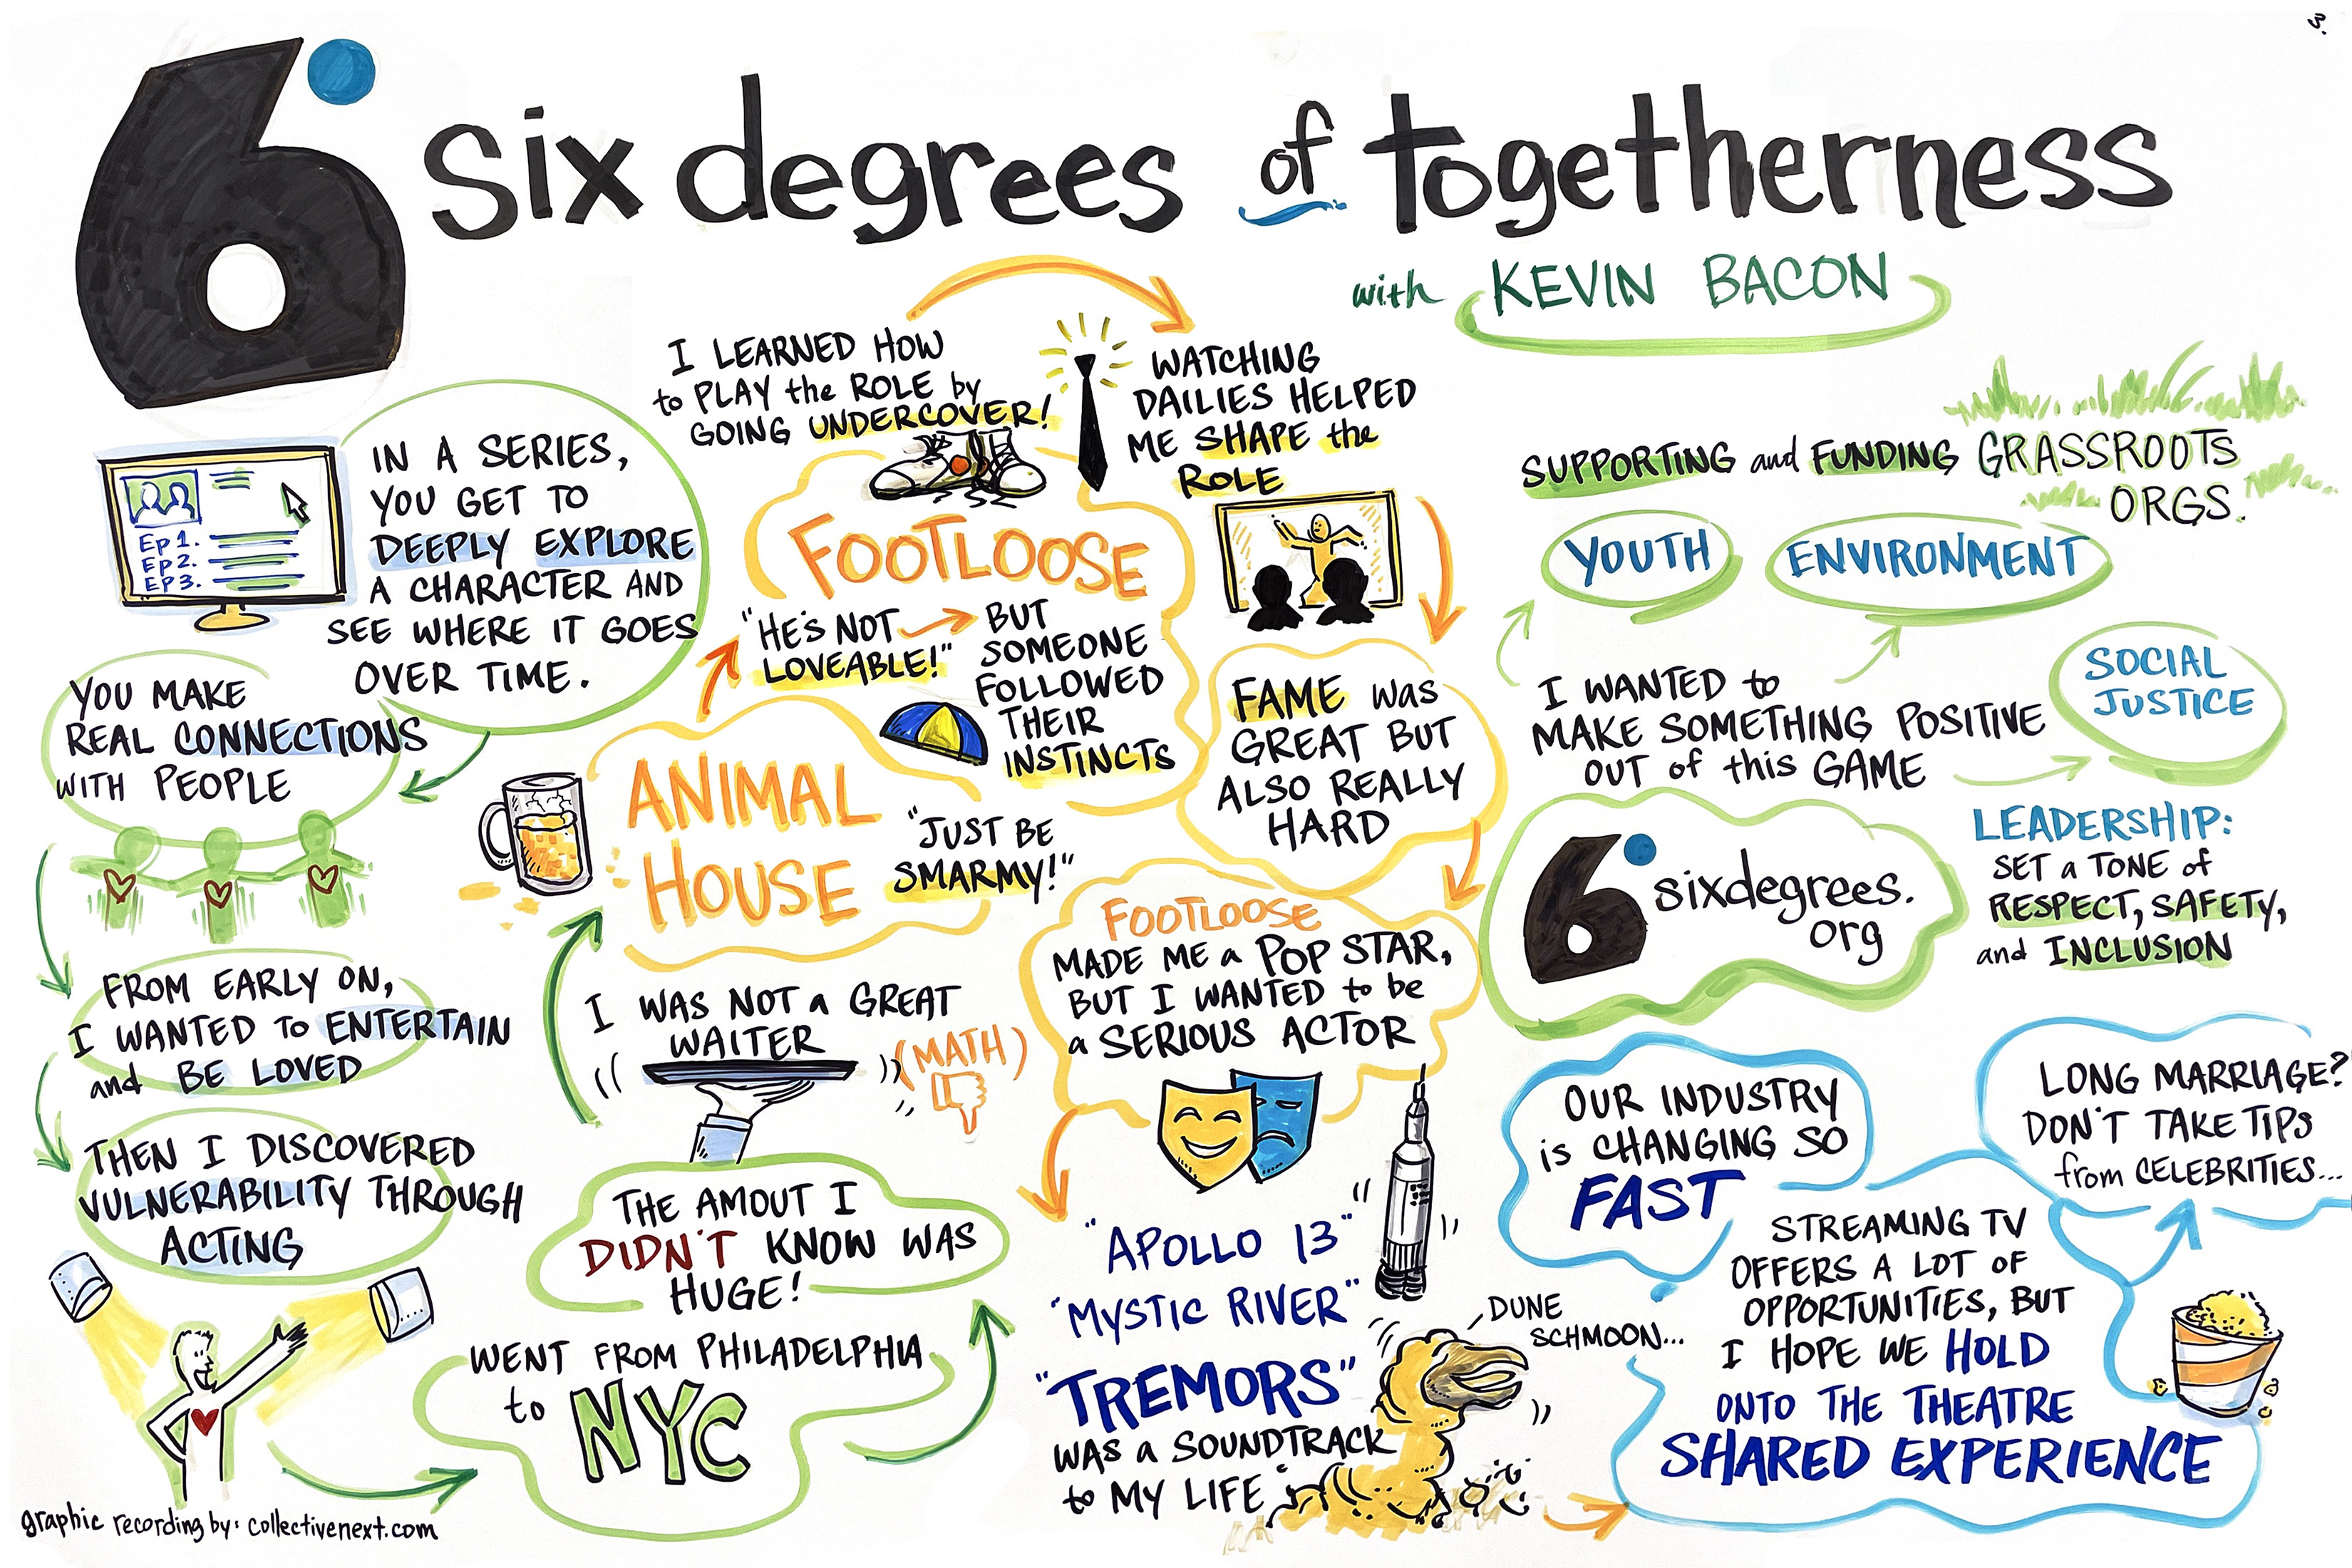 3.
6° six degrees of togetherness
with KEVIN BACON
IN A SERIES,
YOU GET TO
DEEPLY EXPLORE
A CHARACTER AND
SEE WHERE IT GOES
OVER TIME.
Ep 1.
EP 2.
EP 3.
YOU MAKE
REAL CONNECTIONS
WITH PEOPLE
FROM EARLY ON,
I WANTED TO ENTERTAIN
and BE LOVED
THEN I DISCOVERED
VULNERABILITY THROUGH
ACTING
WENT FROM PHILADELPHIA
to NYC
THE AMOUT I
DIDN'T KNOW WAS
HUGE!
I WAS NOT a GREAT
WAITER
(MATH)
ANIMAL
HOUSE
"JUST BE
SMARMY!"
FOOTLOOSE
"HE'S NOT
LOVEABLE!"
BUT
SOMEONE
FOLLOWED
THEIR
INSTINCTS
I LEARNED HOW
to PLAY the ROLE by
GOING UNDERCOVER!
WATCHING
DAILIES HELPED
ME SHAPE the
ROLE
FAME was
GREAT BUT
ALSO REALLY
HARD
FOOTLOOSE
MADE ME a POP STAR,
BUT I WANTED to be
a SERIOUS ACTOR
"APOLLO 13"
"MYSTIC RIVER"
"TREMORS"
WAS a SOUNDTRACK
to MY LIFE
DUNE
SCHMOON...
SUPPORTING and FUNDING GRASSROOTS
ORGS.
YOUTH
ENVIRONMENT
SOCIAL
JUSTICE
I WANTED to
MAKE SOMETHING POSITIVE
OUT of this GAME
6° sixdegrees.
org
LEADERSHIP:
SET a TONE of
RESPECT, SAFETY,
and INCLUSION
OUR INDUSTRY
is CHANGING SO
FAST
STREAMING TV
OFFERS A LOT OF
OPPORTUNITIES, BUT
I HOPE WE HOLD
ONTO THE THEATRE
SHARED EXPERIENCE
LONG MARRIAGE?
DON'T TAKE TIPS
from CELEBRITIES...
graphic recording by: collectivenext.com